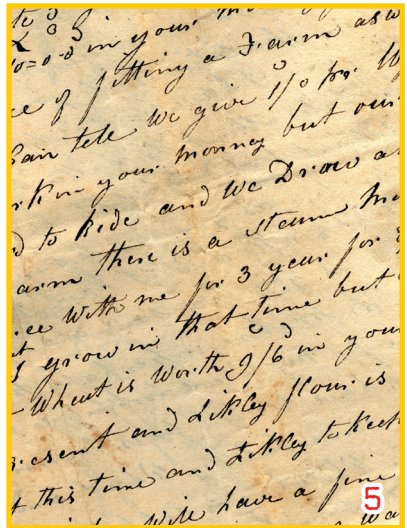 in your
=0-0 in your
ce of fitting a Farm as
Can tell We give 1/0 pr
rk in your monney but our
d to Ride and We Draw a
arm there is a steam
ee With me for 3 year for
grow in that time but
Wheat is Worth 9/6 in your
resent and Likley flour is
t this time and Likley to Keep
Will have a fine
5